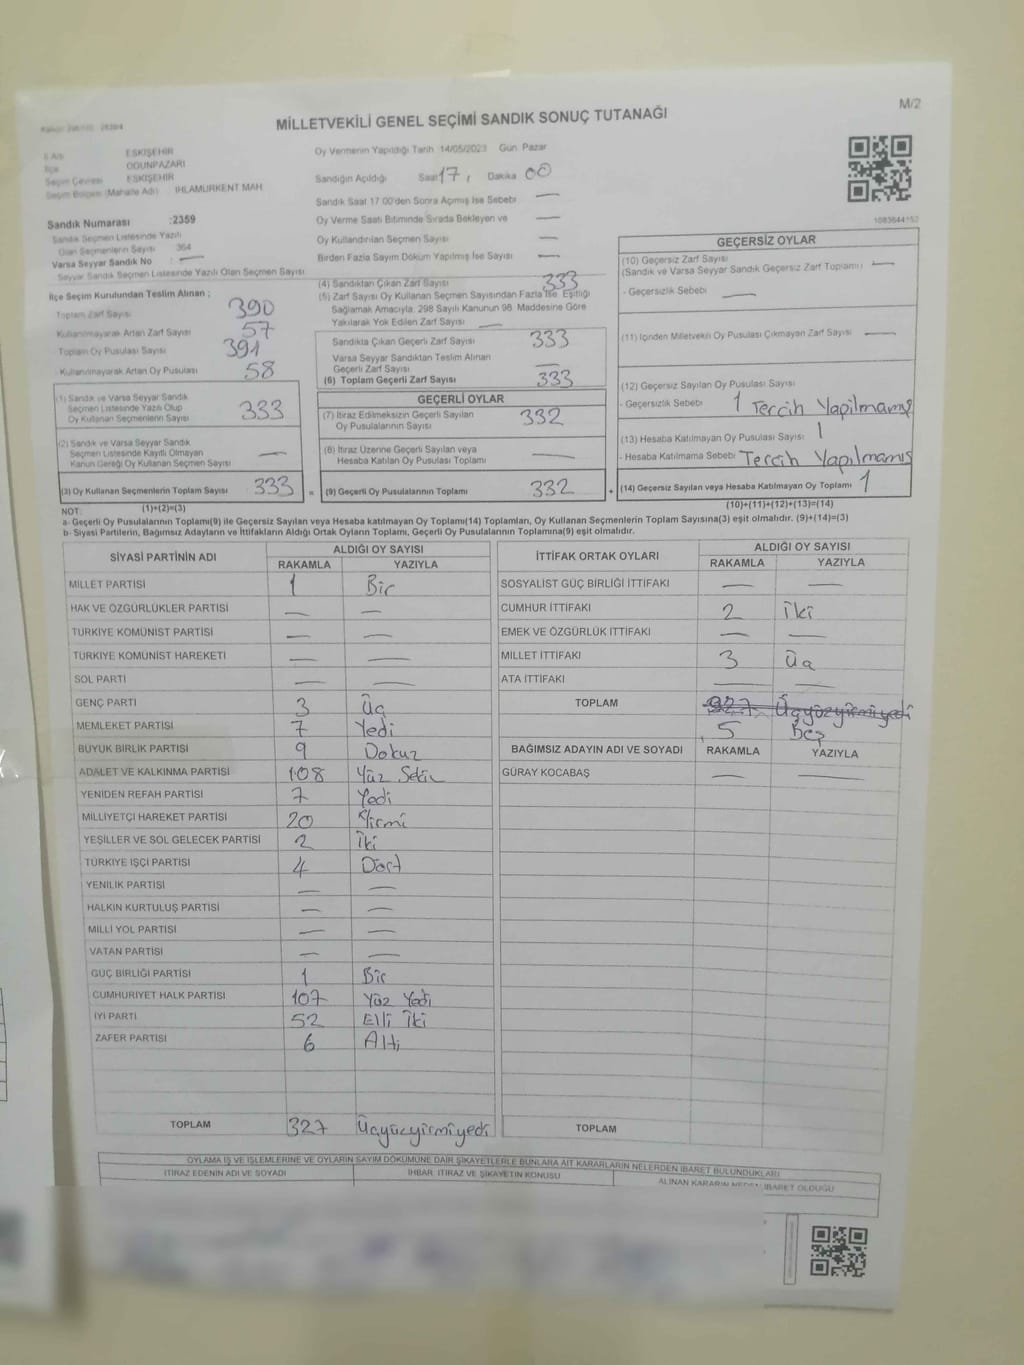 M/2
MİLLETVEKİLİ GENEL SEÇİMİ SANDIK SONUÇ TUTANAĞI
ESKİŞEHİR
ODUNPAZARI
Seçim Çevresi ESKİŞEHİR
Seçim Bölgesi (Mahalle Adı) IHLAMURKENT MAH
Sandık Numarası :2359
Sandık Seçmen Listesinde Yazılı
Olan Seçmenlerin Sayısı 364
Varsa Seyyar Sandık No : —
Seyyar Sandık Seçmen Listesinde Yazılı Olan Seçmen Sayısı
Oy Vermenin Yapıldığı Tarih 14/05/2023 Gün Pazar
Sandığın Açıldığı Saat 17, Dakika 00
Sandık Saat 17:00'den Sonra Açılmış İse Sebebi —
Oy Verme Saati Bitiminde Sırada Bekleyen ve —
Oy Kullandırılan Seçmen Sayısı —
Birden Fazla Sayım Döküm Yapılmış İse Sayısı —
İlçe Seçim Kurulundan Teslim Alınan :
Toplam Zarf Sayısı 390
Kullanılmayarak Artan Zarf Sayısı 57
Toplam Oy Pusulası Sayısı 391
Kullanılmayarak Artan Oy Pusulası 58
(1) Sandık ve Varsa Seyyar Sandık
Seçmen Listesinde Yazılı Olup
Oy Kullanan Seçmenlerin Sayısı 333
(2) Sandık ve Varsa Seyyar Sandık
Seçmen Listesinde Kayıtlı Olmayan
Kanun Gereği Oy Kullanan Seçmen Sayısı —
(3) Oy Kullanan Seçmenlerin Toplam Sayısı 333
(1)+(2)=(3)
(4) Sandıktan Çıkan Zarf Sayısı 333
(5) Zarf Sayısı Oy Kullanan Seçmen Sayısından Fazla İse, Eşitliği
Sağlamak Amacıyla, 298 Sayılı Kanunun 98. Maddesine Göre
Yakılarak Yok Edilen Zarf Sayısı —
Sandıkta Çıkan Geçerli Zarf Sayısı 333
Varsa Seyyar Sandıktan Teslim Alınan
Geçerli Zarf Sayısı —
(6) Toplam Geçerli Zarf Sayısı 333
GEÇERLİ OYLAR
(7) İtiraz Edilmeksizin Geçerli Sayılan
Oy Pusulalarının Sayısı 332
(8) İtiraz Üzerine Geçerli Sayılan veya
Hesaba Katılan Oy Pusulası Toplamı —
= (9) Geçerli Oy Pusulalarının Toplamı 332 +
1083644152
GEÇERSİZ OYLAR
(10) Geçersiz Zarf Sayısı
(Sandık ve Varsa Seyyar Sandık Geçersiz Zarf Toplamı) —
- Geçersizlik Sebebi —
(11) İçinden Milletvekili Oy Pusulası Çıkmayan Zarf Sayısı —
(12) Geçersiz Sayılan Oy Pusulası Sayısı
- Geçersizlik Sebebi 1 Tercih Yapılmamış
(13) Hesaba Katılmayan Oy Pusulası Sayısı 1
- Hesaba Katılmama Sebebi Tercih Yapılmamış
(14) Geçersiz Sayılan veya Hesaba Katılmayan Oy Toplamı 1
(10)+(11)+(12)+(13)=(14)
NOT:
a- Geçerli Oy Pusulalarının Toplamı(9) ile Geçersiz Sayılan veya Hesaba katılmayan Oy Toplamı(14) Toplamları, Oy Kullanan Seçmenlerin Toplam Sayısına(3) eşit olmalıdır. (9)+(14)=(3)
b- Siyasi Partilerin, Bağımsız Adayların ve İttifakların Aldığı Ortak Oyların Toplamı, Geçerli Oy Pusulalarının Toplamına(9) eşit olmalıdır.
SİYASİ PARTİNİN ADI ALDIĞI OY SAYISI
RAKAMLA YAZIYLA
MİLLET PARTİSİ 1 Bir
HAK VE ÖZGÜRLÜKLER PARTİSİ — —
TÜRKİYE KOMÜNİST PARTİSİ — —
TÜRKİYE KOMÜNİST HAREKETİ — —
SOL PARTİ — —
GENÇ PARTİ 3 Üç
MEMLEKET PARTİSİ 7 Yedi
BÜYÜK BİRLİK PARTİSİ 9 Dokuz
ADALET VE KALKINMA PARTİSİ 108 Yüz Sekiz
YENİDEN REFAH PARTİSİ 7 Yedi
MİLLİYETÇİ HAREKET PARTİSİ 20 Yirmi
YEŞİLLER VE SOL GELECEK PARTİSİ 2 İki
TÜRKİYE İŞÇİ PARTİSİ 4 Dört
YENİLİK PARTİSİ — —
HALKIN KURTULUŞ PARTİSİ — —
MİLLİ YOL PARTİSİ — —
VATAN PARTİSİ — —
GÜÇ BİRLİĞİ PARTİSİ 1 Bir
CUMHURİYET HALK PARTİSİ 107 Yüz Yedi
İYİ PARTİ 52 Elli İki
ZAFER PARTİSİ 6 Altı
TOPLAM 327 Üçyüzyirmiyedi
İTTİFAK ORTAK OYLARI ALDIĞI OY SAYISI
RAKAMLA YAZIYLA
SOSYALİST GÜÇ BİRLİĞİ İTTİFAKI — —
CUMHUR İTTİFAKI 2 İki
EMEK VE ÖZGÜRLÜK İTTİFAKI — —
MİLLET İTTİFAKI 3 Üç
ATA İTTİFAKI — —
TOPLAM 327 Üçyüzyirmiyedi
5 Beş
BAĞIMSIZ ADAYIN ADI VE SOYADI RAKAMLA YAZIYLA
GÜRAY KOCABAŞ — —
TOPLAM
OYLAMA İŞ VE İŞLEMLERİNE VE OYLARIN SAYIM DÖKÜMÜNE DAİR ŞİKAYETLERLE BUNLARA AİT KARARLARIN NELERDEN İBARET BULUNDUKLARI
İTİRAZ EDENİN ADI VE SOYADI İHBAR, İTİRAZ VE ŞİKAYETİN KONUSU ALINAN KARARIN NEDEN İBARET OLDUĞU